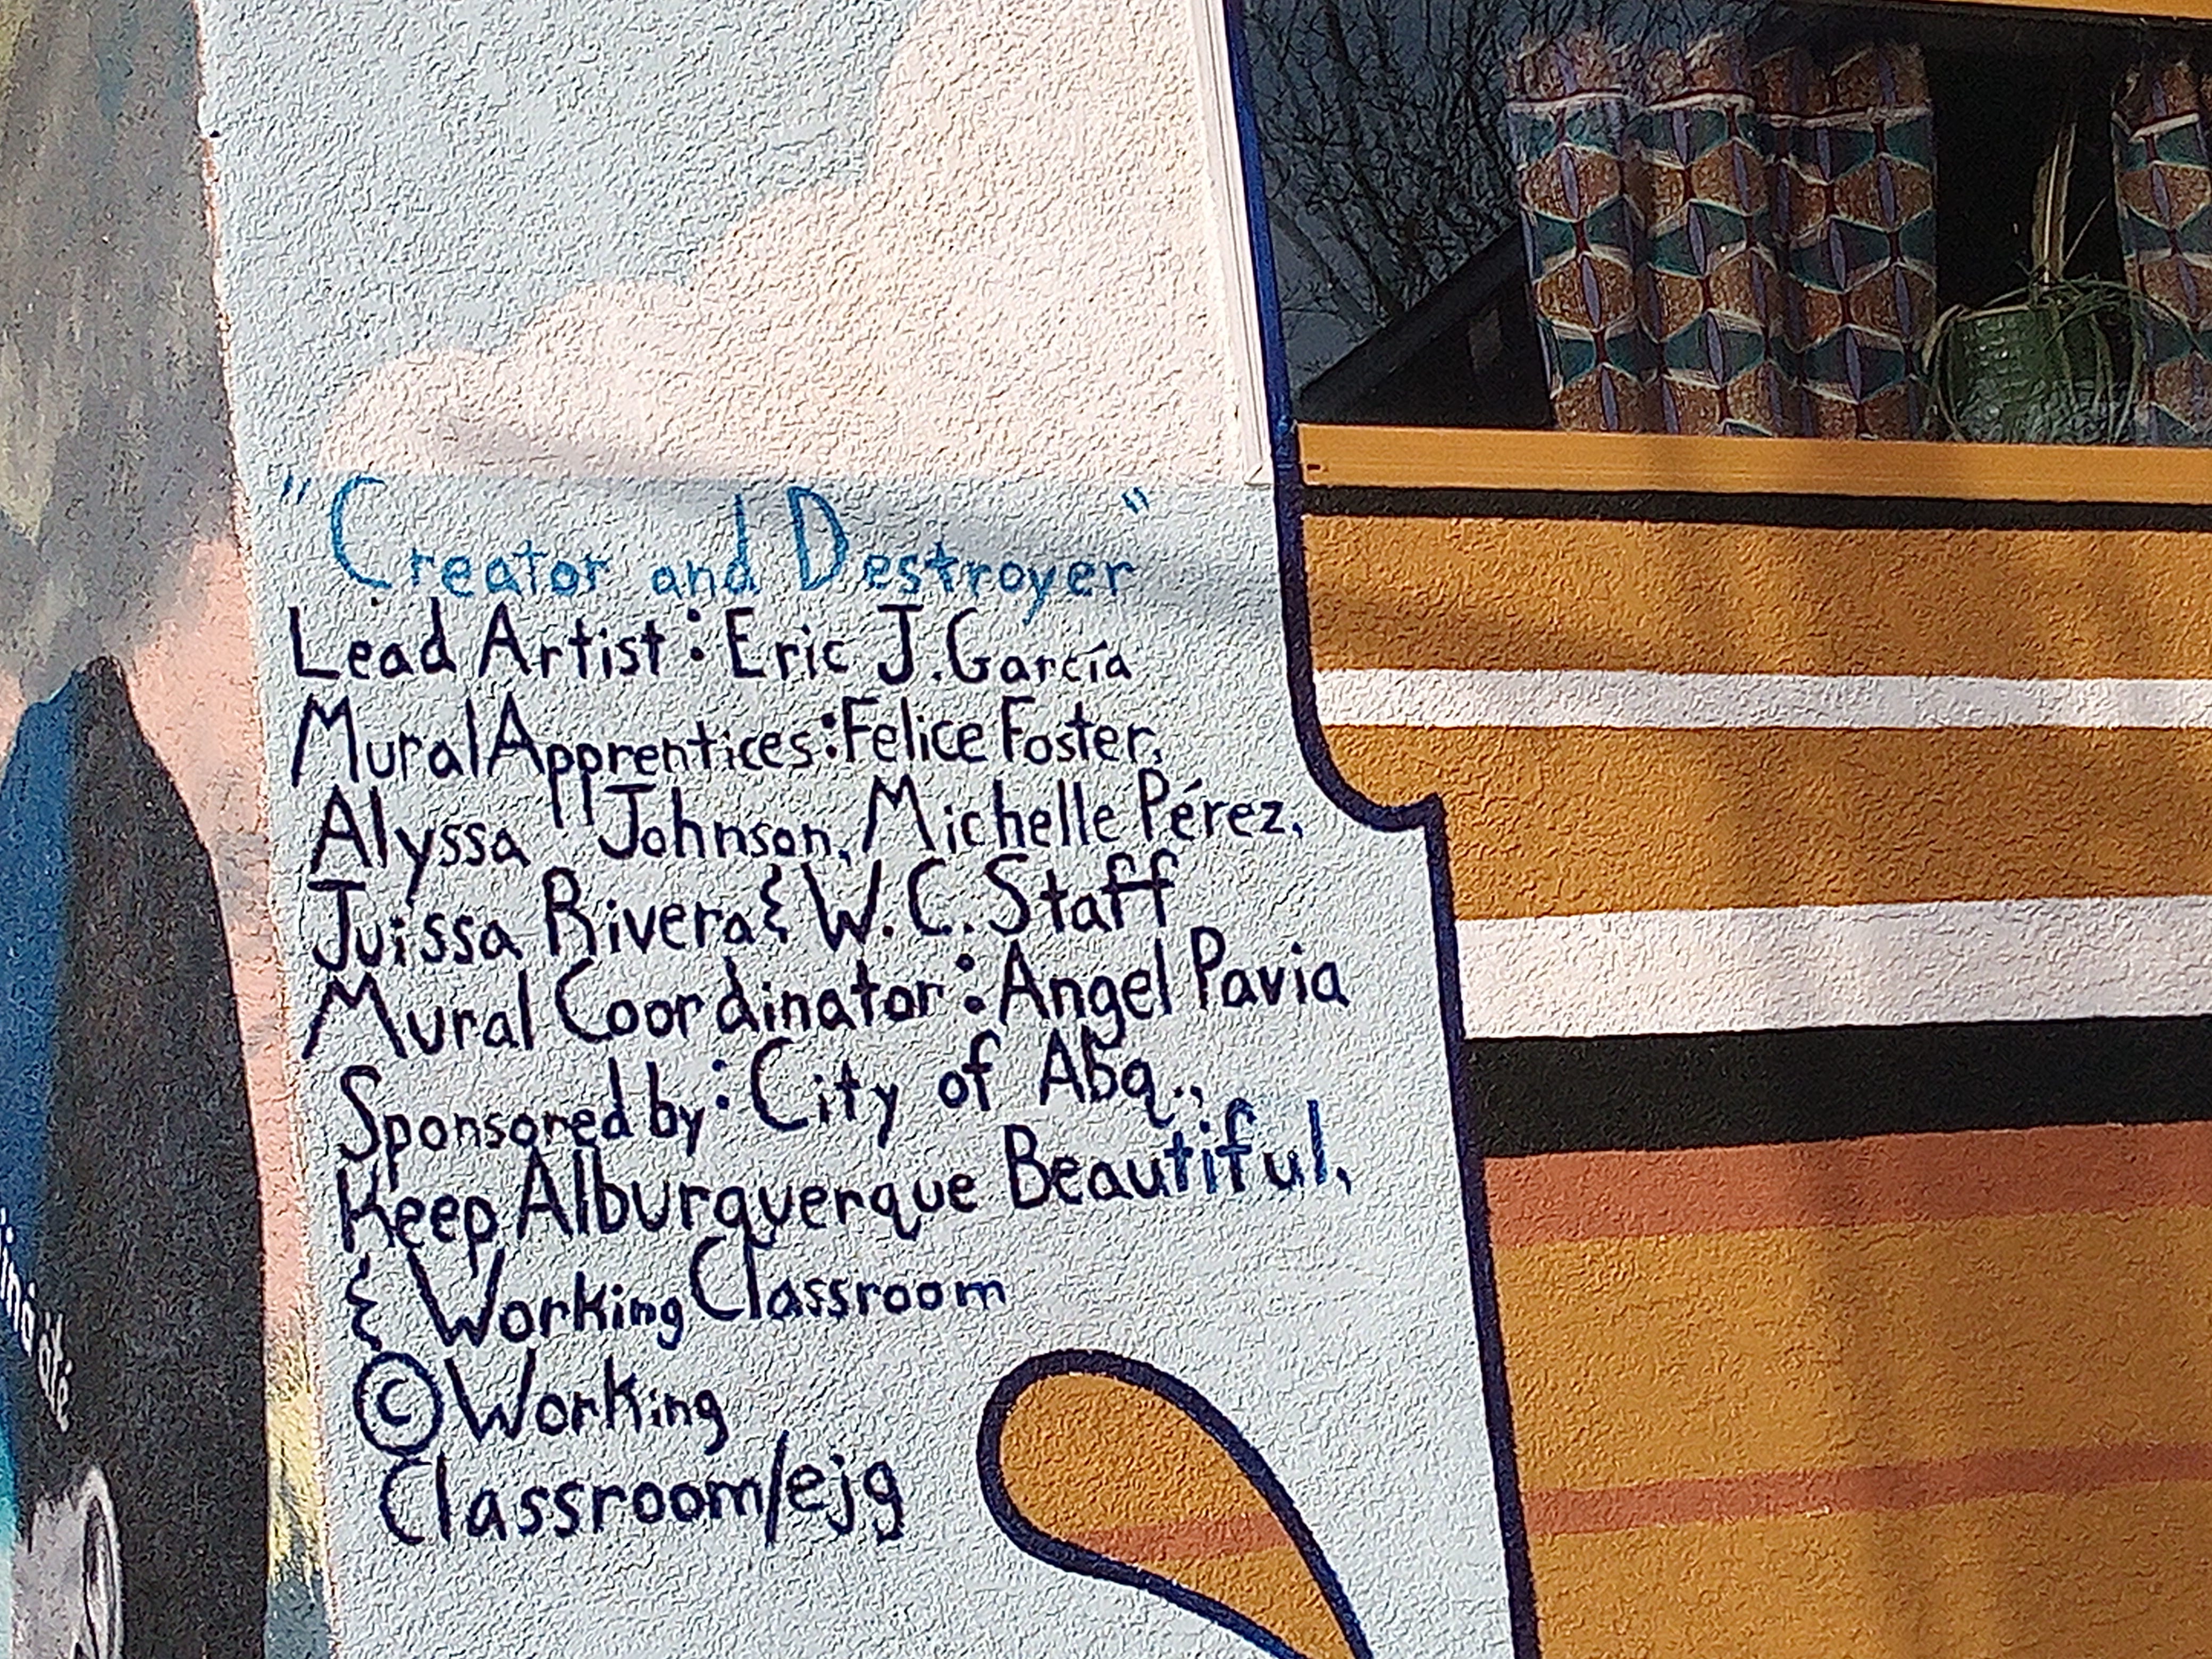 "Creator and Destroyer"
Lead Artist: Eric J. García
Mural Apprentices: Felice Foster,
Alyssa Johnson, Michelle Pérez,
Juissa Rivera & W.C. Staff
Mural Coordinator: Angel Pavia
Sponsored by: City of Abq.,
Keep Alburquerque Beautiful,
& Working Classroom
© Working
Classroom/ejg